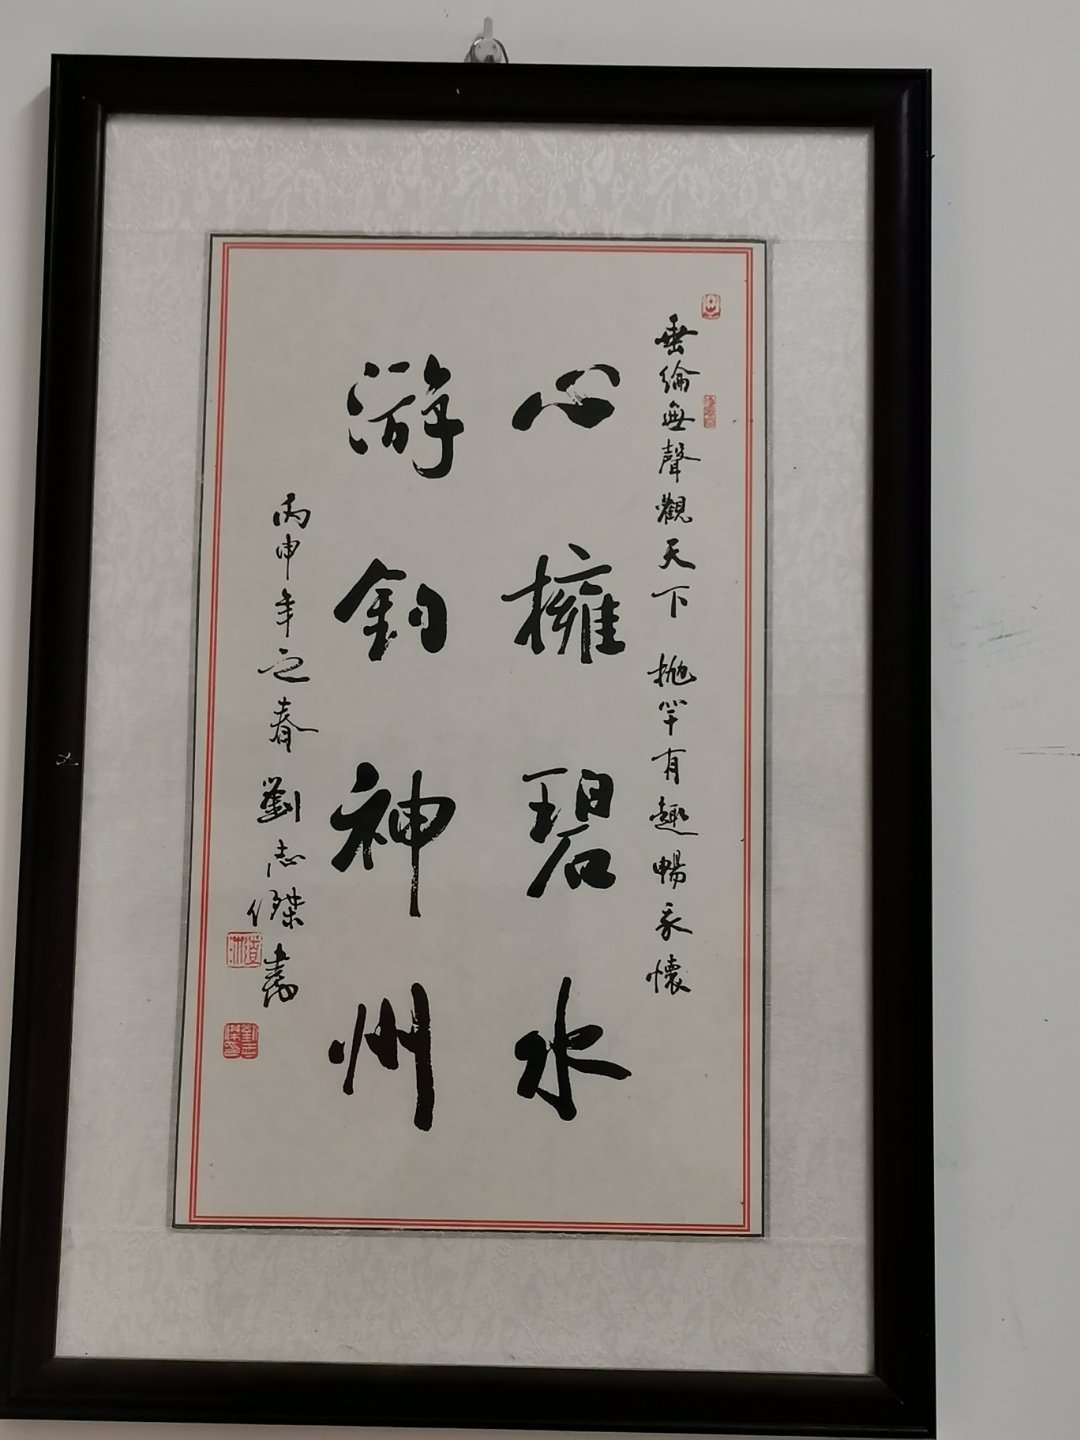 垂綸無聲觀天下 拋竿有趣暢我懷
心擁碧水
游釣神州
丙申年之春劉志傑書